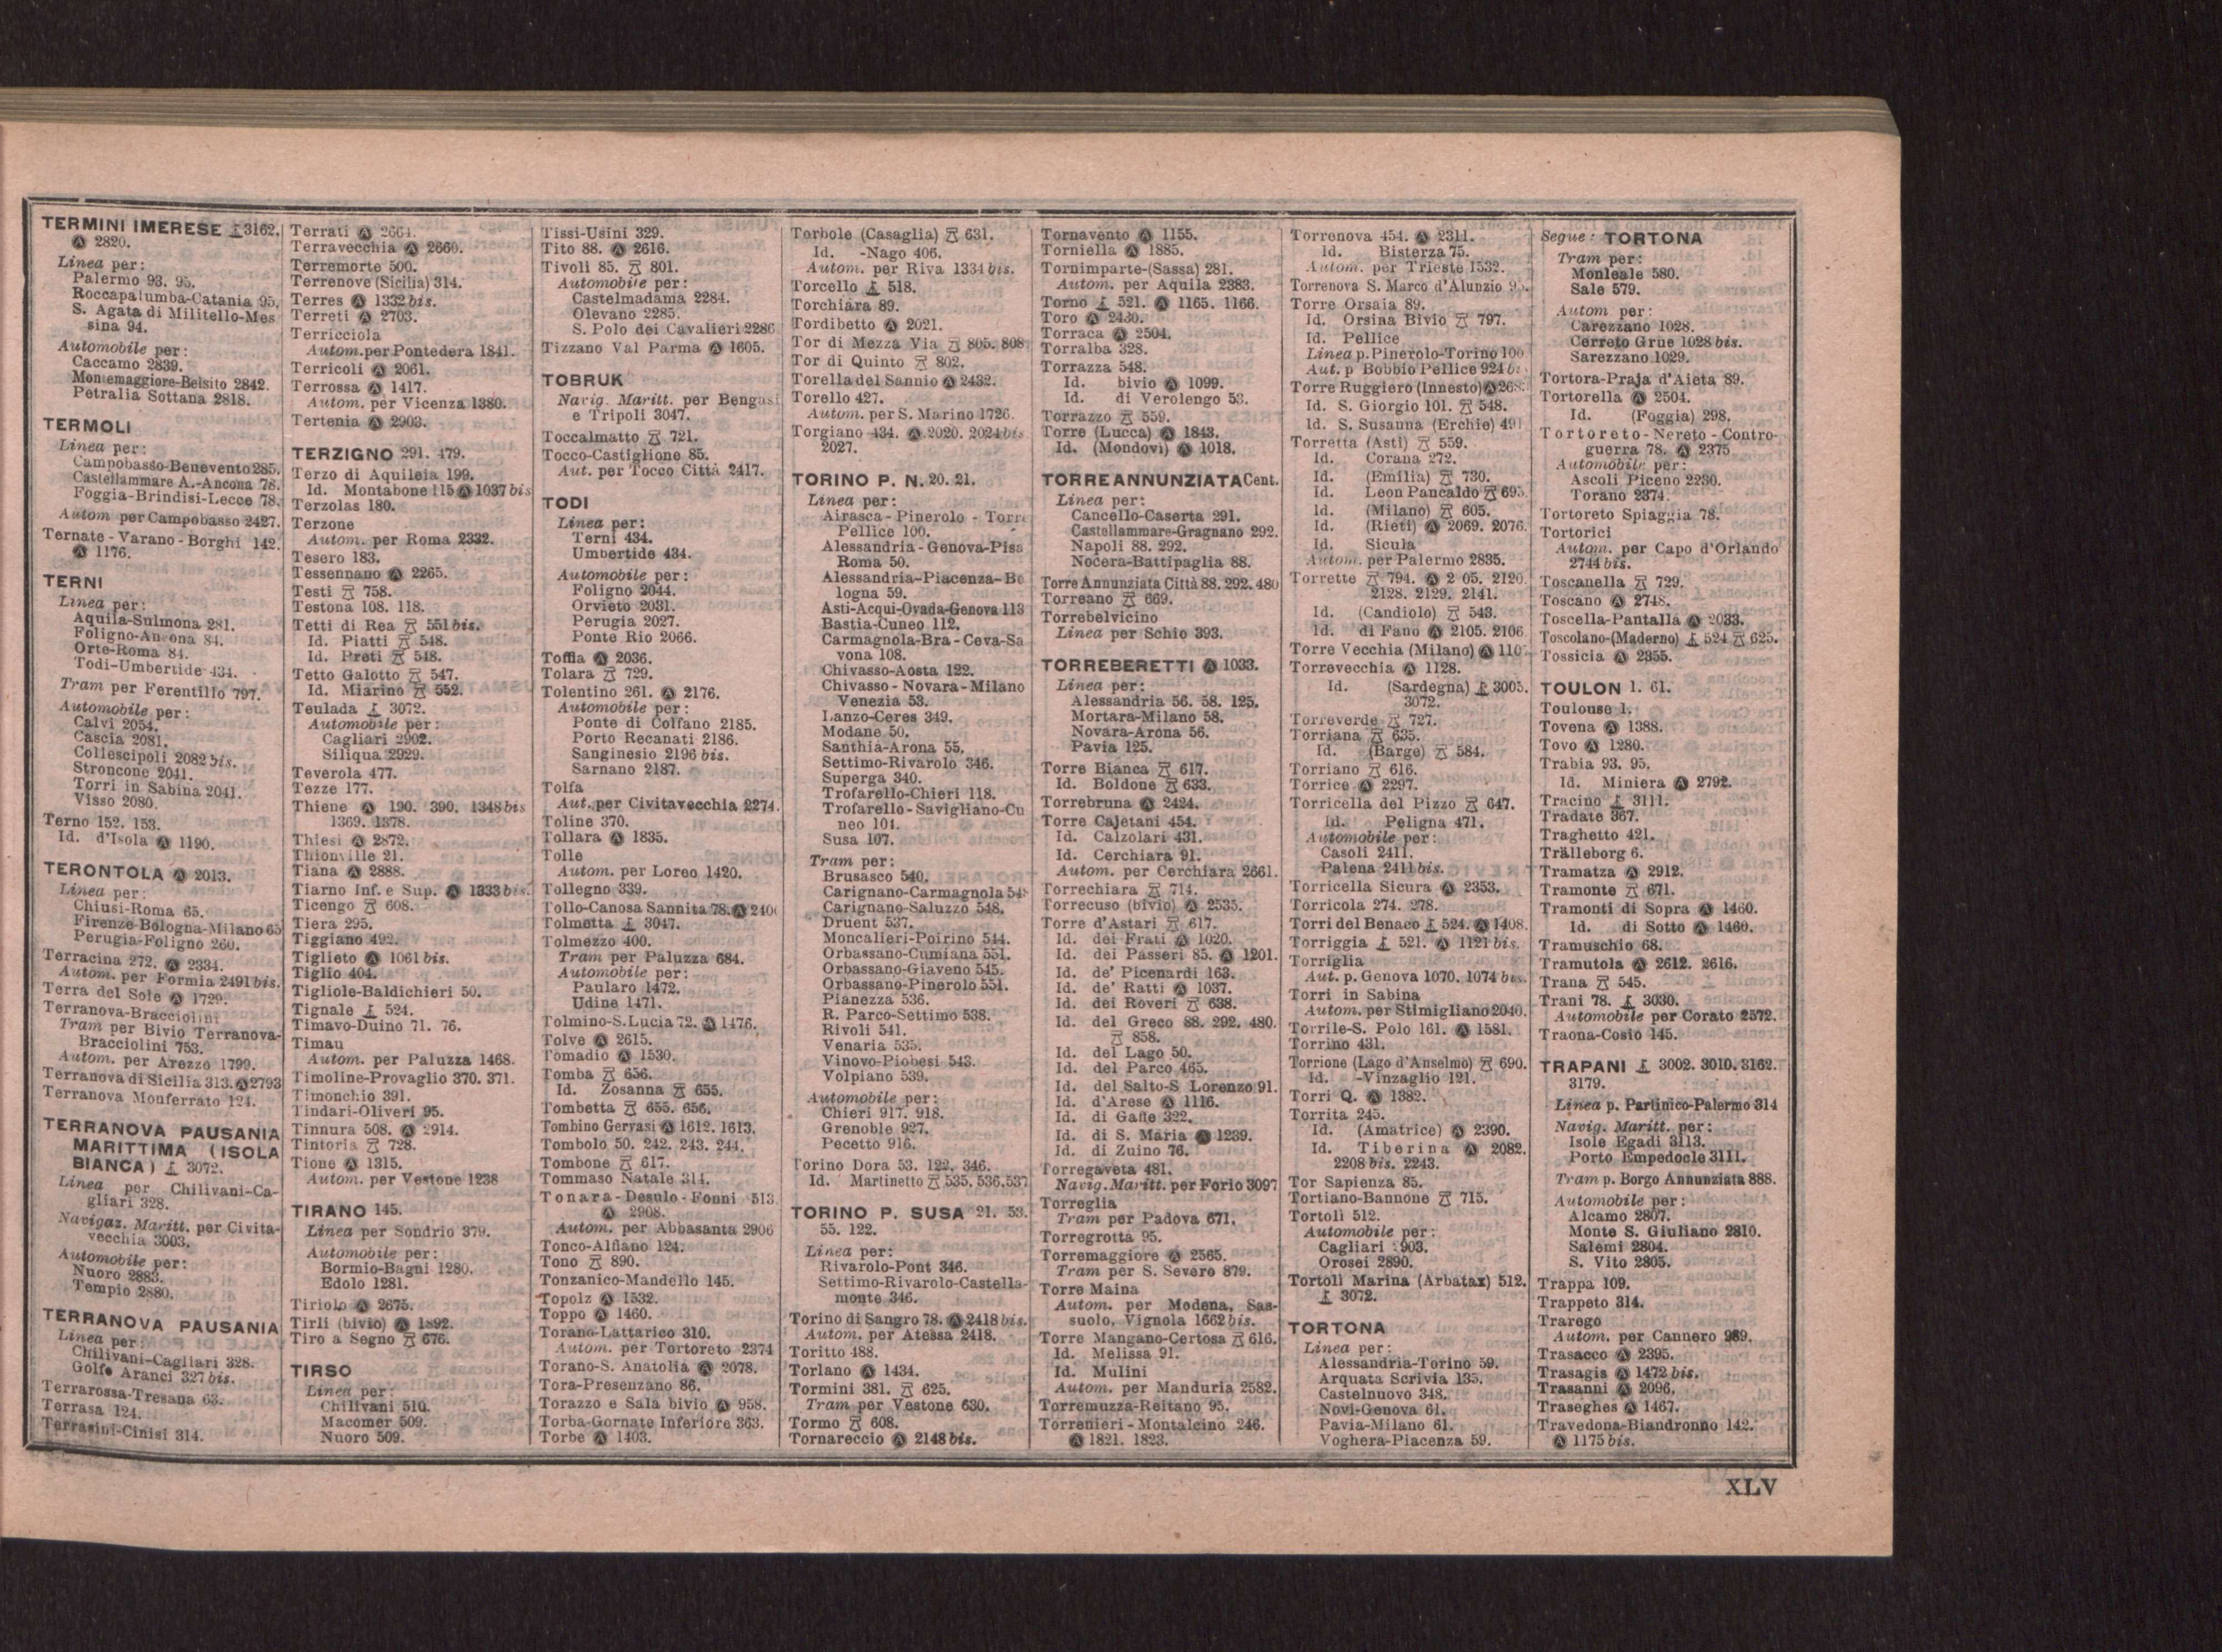 TERMINI IMERESE 3162.
Ⓐ 2820.
Linea per:
Palermo 93. 95.
Roccapalumba-Catania 95.
S. Agata di Militello-Mes
sina 94.
Automobile per:
Caccamo 2839.
Montemaggiore-Belsito 2842.
Petralia Sottana 2818.
TERMOLI
Linea per:
Campobasso-Benevento 285.
Castellammare A.-Ancona 78.
Foggia-Brindisi-Lecce 78.
Autom per Campobasso 2427.
Ternate - Varano - Borghi 142.
Ⓐ 1176.
TERNI
Linea per:
Aquila-Sulmona 281.
Foligno-Ancona 84.
Orte-Roma 84.
Todi-Umbertide 434.
Tram per Ferentillo 797.
Automobile per:
Calvi 2054.
Cascia 2081.
Collescipoli 2082 bis.
Stroncone 2041.
Torri in Sabina 2041.
Visso 2080.
Terno 152. 153.
Id. d'Isola Ⓐ 1190.
TERONTOLA Ⓐ 2013.
Linea per:
Chiusi-Roma 65.
Firenze-Bologna-Milano 65
Perugia-Foligno 260.
Terracina 272. Ⓐ 2334.
Autom. per Formia 2491 bis.
Terra del Sole Ⓐ 1729.
Terranova-Bracciolini
Tram per Bivio Terranova-
Bracciolini 753.
Autom. per Arezzo 1799.
Terranova di Sicilia 313. Ⓐ 2793
Terranova Monferrato 124.
TERRANOVA PAUSANIA
MARITTIMA (ISOLA
BIANCA) 3072.
Linea per Chilivani-Ca-
gliari 328.
Navigaz. Maritt. per Civita-
vecchia 3003.
Automobile per:
Nuoro 2883.
Tempio 2880.
TERRANOVA PAUSANIA
Linea per:
Chilivani-Cagliari 328.
Golfo Aranci 327 bis.
Terrarossa-Tresana 63.
Terrasa 124.
Terrasini-Cinisi 314.
Terrati Ⓐ 2664.
Terravecchia Ⓐ 2660.
Terremorte 500.
Terrenove (Sicilia) 314.
Terres Ⓐ 1332 bis.
Terreti Ⓐ 2703.
Terricciola
Autom. per Pontedera 1841.
Terricoli Ⓐ 2061.
Terrossa Ⓐ 1417.
Autom. per Vicenza 1380.
Tertenia Ⓐ 2903.
TERZIGNO 291. 479.
Terzo di Aquileia 199.
Id. Montabone 115 Ⓐ 1037 bis
Terzolas 180.
Terzone
Autom. per Roma 2332.
Tesero 183.
Tessennano Ⓐ 2265.
Testi 758.
Testona 108. 118.
Tetti di Rea 551 bis.
Id. Piatti 548.
Id. Preti 548.
Tetto Galotto 547.
Id. Miarino 552.
Teulada 3072.
Automobile per:
Cagliari 2902.
Siliqua 2929.
Teverola 477.
Tezze 177.
Thiene Ⓐ 190. 390. 1348 bis
1369. 1378.
Thiesi Ⓐ 2872.
Thionville 21.
Tiana Ⓐ 2888.
Tiarno Inf. e Sup. Ⓐ 1333 bis.
Ticengo 608.
Tiera 295.
Tiggiano 492.
Tiglieto Ⓐ 1061 bis.
Tiglio 404.
Tigliole-Baldichieri 50.
Tignale 524.
Timavo-Duino 71. 76.
Timau
Autom. per Paluzza 1468.
Timoline-Provaglio 370. 371.
Timonchio 391.
Tindari-Oliveri 95.
Tinnura 508. Ⓐ 2914.
Tintoria 728.
Tione Ⓐ 1315.
Autom. per Vestone 1238
TIRANO 145.
Linea per Sondrio 379.
Automobile per:
Bormio-Bagni 1280.
Edolo 1281.
Tiriolo Ⓐ 2675.
Tirli (bivio) Ⓐ 1892.
Tiro a Segno 676.
TIRSO
Linea per:
Chilivani 510.
Macomer 509.
Nuoro 509.
Tissi-Usini 329.
Tito 88. Ⓐ 2616.
Tivoli 85. 801.
Automobile per:
Castelmadama 2284.
Olevano 2285.
S. Polo dei Cavalieri 2286
Tizzano Val Parma Ⓐ 1605.
TOBRUK
Navig. Maritt. per Bengasi
e Tripoli 3047.
Toccalmatto 721.
Tocco-Castiglione 85.
Aut. per Tocco Città 2417.
TODI
Linea per:
Terni 434.
Umbertide 434.
Automobile per:
Foligno 2044.
Orvieto 2031.
Perugia 2027.
Ponte Rio 2066.
Toffia Ⓐ 2036.
Tolara 729.
Tolentino 261. Ⓐ 2176.
Automobile per:
Ponte di Colfano 2185.
Porto Recanati 2186.
Sanginesio 2196 bis.
Sarnano 2187.
Tolfa
Aut. per Civitavecchia 2274.
Toline 370.
Tollara Ⓐ 1835.
Tolle
Autom. per Loreo 1420.
Tollegno 339.
Tollo-Canosa Sannita 78. Ⓐ
Tolmetta 3047.
Tolmezzo 400.
Tram per Paluzza 684.
Automobile per:
Paularo 1472.
Udine 1471.
Tolmino-S. Lucia 72. Ⓐ 1476.
Tolve Ⓐ 2615.
Tomadio Ⓐ 1530.
Tomba 656.
Id. Zosanna 655.
Tombetta 655. 656.
Tombino Gervasi Ⓐ 1612. 1613.
Tombolo 50. 242. 243. 244.
Tombone 617.
Tommaso Natale 314.
Tonara-Desulo-Fonni 513
Ⓐ 2908.
Autom. per Abbasanta 2906
Tonco-Alfiano 124.
Tono 890.
Tonzanico-Mandello 145.
Topolz Ⓐ 1532.
Toppo Ⓐ 1460.
Torano-Lattarico 310.
Autom. per Tortoreto 2374
Torano-S. Anatolia Ⓐ 2078.
Tora-Presenzano 86.
Torazzo e Sala bivio Ⓐ 958.
Torba-Gornate Inferiore 363.
Torbe Ⓐ 1403.
Torbole (Casaglia) 631.
Id. -Nago 406.
Autom. per Riva 1334 bis.
Torcello 518.
Torchiara 89.
Tordibetto Ⓐ 2021.
Tor di Mezza Via 805. 808
Tor di Quinto 802.
Torella del Sannio Ⓐ 2432.
Torello 427.
Autom. per S. Marino 1726.
Torgiano 434. Ⓐ 2020. 2024 bis
2027.
TORINO P. N. 20. 21.
Linea per:
Airasca - Pinerolo - Torre
Pellice 100.
Alessandria - Genova-Pisa
Roma 50.
Alessandria-Piacenza-Bo
logna 59.
Asti-Acqui-Ovada-Genova 113
Bastia-Cuneo 112.
Carmagnola-Bra - Ceva-Sa
vona 108.
Chivasso-Aosta 122.
Chivasso - Novara - Milano
Venezia 53.
Lanzo-Ceres 349.
Modane 50.
Santhià-Arona 55.
Settimo-Rivarolo 346.
Superga 340.
Trofarello-Chieri 118.
Trofarello - Savigliano-Cu
neo 101.
Susa 107.
Tram per:
Brusasco 540.
Carignano-Carmagnola
Carignano-Saluzzo 548.
Druent 537.
Moncalieri-Poirino 544.
Orbassano-Cumiana 551.
Orbassano-Giaveno 545.
Orbassano-Pinerolo 551.
Pianezza 536.
R. Parco-Settimo 538.
Rivoli 541.
Venaria 535.
Vinovo-Piobesi 543.
Volpiano 539.
Automobile per:
Chieri 917. 918.
Grenoble 927.
Pecetto 916.
Torino Dora 53. 122. 346.
Id. Martinetto 535. 536. 537
TORINO P. SUSA 21. 53.
55. 122.
Linea per:
Rivarolo-Pont 346.
Settimo-Rivarolo-Castella-
monte 346.
Torino di Sangro 78. Ⓐ 2418 bis.
Autom. per Atessa 2418.
Toritto 488.
Torlano Ⓐ 1434.
Tormini 381. 625.
Tram per Vestone 630.
Tormo 608.
Tornareccio Ⓐ 2148 bis.
Tornavento Ⓐ 1155.
Torniella Ⓐ 1885.
Tornimparte-(Sassa) 281.
Autom. per Aquila 2383.
Torno 521. Ⓐ 1165. 1166.
Toro Ⓐ 2430.
Torraca Ⓐ 2504.
Torralba 328.
Torrazza 548.
Id. bivio Ⓐ 1099.
Id. di Verolengo 53.
Torrazzo 559.
Torre (Lucca) Ⓐ 1843.
Id. (Mondovì) Ⓐ 1018.
TORRE ANNUNZIATA Cent.
Linea per:
Cancello-Caserta 291.
Castellammare-Gragnano 292.
Napoli 88. 292.
Nocera-Battipaglia 88.
Torre Annunziata Città 88. 292. 480
Torreano 669.
Torrebelvicino
Linea per Schio 393.
TORREBERETTI Ⓐ 1033.
Linea per:
Alessandria 56. 58. 125.
Mortara-Milano 58.
Novara-Arona 56.
Pavia 125.
Torre Bianca 617.
Id. Boldone 633.
Torrebruna Ⓐ 2424.
Torre Cajetani 454.
Id. Calzolari 431.
Id. Cerchiara 91.
Autom. per Cerchiara 2661.
Torrechiara 714.
Torrecuso (bivio) Ⓐ 2535.
Torre d'Astari 617.
Id. dei Frati Ⓐ 1020.
Id. dei Passeri 85. Ⓐ 1201.
Id. de' Picenardi 163.
Id. de' Ratti Ⓐ 1037.
Id. dei Roveri 638.
Id. del Greco 88. 292. 480.
858.
Id. del Lago 50.
Id. del Parco 465.
Id. del Salto-S Lorenzo 91.
Id. d'Arese Ⓐ 1116.
Id. di Gaffe 322.
Id. di S. Maria Ⓐ 1239.
Id. di Zuino 76.
Torregaveta 481.
Navig. Maritt. per Forio 3097
Torreglia
Tram per Padova 671.
Torregrotta 95.
Torremaggiore Ⓐ 2565.
Tram per S. Severo 879.
Torre Maina
Autom. per Modena, Sas-
suolo, Vignola 1662 bis.
Torre Mangano-Certosa 616.
Id. Melissa 91.
Id. Mulini
Autom. per Manduria 2582.
Torremuzza-Reitano 95.
Torrenieri - Montalcino 246.
Ⓐ 1821. 1823.
Torrenova 454. Ⓐ 2311.
Id. Bisterza 75.
Autom. per Trieste 1532.
Torrenova S. Marco d'Alunzio 95.
Torre Orsaia 89.
Id. Orsina Bivio 797.
Id. Pellice
Linea p. Pinerolo-Torino 100
Aut. p Bobbio Pellice 924
Torre Ruggiero (Innesto) Ⓐ
Id. S. Giorgio 101. 548.
Id. S. Susanna (Erchie) 491
Torretta (Asti) 559.
Id. Corana 272.
Id. (Emilia) 730.
Id. Leon Pancaldo 695.
Id. (Milano) 605.
Id. (Rieti) Ⓐ 2069. 2076.
Id. Sicula
Autom. per Palermo 2835.
Torrette 794. Ⓐ 2120.
2128. 2129. 2141.
Id. (Candiolo) 543.
Id. di Fano Ⓐ 2105. 2106
Torre Vecchia (Milano) Ⓐ
Torrevecchia Ⓐ 1128.
Id. (Sardegna) 3005.
3072.
Torreverde 727.
Torriana 635.
Id. (Barge) 584.
Torriano 616.
Torrice Ⓐ 2297.
Torricella del Pizzo 647.
Id. Peligna 471.
Automobile per:
Casoli 2411.
Palena 2411 bis.
Torricella Sicura Ⓐ 2353.
Torricola 274. 278.
Torri del Benaco 524. Ⓐ 1408.
Torriggia 521. Ⓐ 1121 bis.
Torriglia
Aut. p. Genova 1070. 1074 bis.
Torri in Sabina
Autom. per Stimigliano 2040.
Torrile-S. Polo 161. Ⓐ 1581.
Torrino 431.
Torrione (Lago d'Anselmo) 690.
Id. -Vinzaglio 121.
Torri Q. Ⓐ 1382.
Torrita 245.
Id. (Amatrice) Ⓐ 2390.
Id. Tiberina Ⓐ 2082.
2208 bis. 2243.
Tor Sapienza 85.
Tortiano-Bannone 715.
Tortolì 512.
Automobile per:
Cagliari
Orosei 2890.
Tortolì Marina (Arbatax) 512.
3072.
TORTONA
Linea per:
Alessandria-Torino 59.
Arquata Scrivia 135.
Castelnuovo 348.
Novi-Genova 61.
Pavia-Milano 61.
Voghera-Piacenza 59.
Segue: TORTONA
Tram per:
Monleale 580.
Sale 579.
Autom per:
Carezzano 1028.
Cerreto Grue 1028 bis.
Sarezzano 1029.
Tortora-Praja d'Aieta 89.
Tortorella Ⓐ 2504.
Id. (Foggia) 298.
Tortoreto - Nereto - Contro-
guerra 78. Ⓐ 2375
Automobile per:
Ascoli Piceno 2230.
Torano 2374.
Tortoreto Spiaggia 78.
Tortorici
Autom. per Capo d'Orlando
2744 bis.
Toscanella 729.
Toscano Ⓐ 2748.
Toscella-Pantalla Ⓐ 2033.
Toscolano-(Maderno) 524 625.
Tossicia Ⓐ 2355.
TOULON 1. 61.
Toulouse 1.
Tovena Ⓐ 1388.
Tovo Ⓐ 1280.
Trabia 93. 95.
Id. Miniera Ⓐ 2792.
Tracino 3111.
Tradate 367.
Traghetto 421.
Trälleborg 6.
Tramatza Ⓐ 2912.
Tramonte 671.
Tramonti di Sopra Ⓐ 1460.
Id. di Sotto Ⓐ 1460.
Tramuschio 68.
Tramutola Ⓐ 2612. 2616.
Trana 545.
Trani 78. 3030.
Automobile per Corato 2572.
Traona-Cosio 145.
TRAPANI 3002. 3010. 3162.
3179.
Linea p. Partinico-Palermo 314
Navig. Maritt. per:
Isole Egadi 3113.
Porto Empedocle 3111.
Tram p. Borgo Annunziata 888.
Automobile per:
Alcamo 2807.
Monte S. Giuliano 2810.
Salemi 2804.
S. Vito 2805.
Trappa 109.
Trappeto 314.
Trarego
Autom. per Cannero 989.
Trasacco Ⓐ 2395.
Trasagis Ⓐ 1472 bis.
Trasanni Ⓐ 2096.
Traseghes Ⓐ 1467.
Travedona-Biandronno 142.
Ⓐ 1175 bis.
XLV